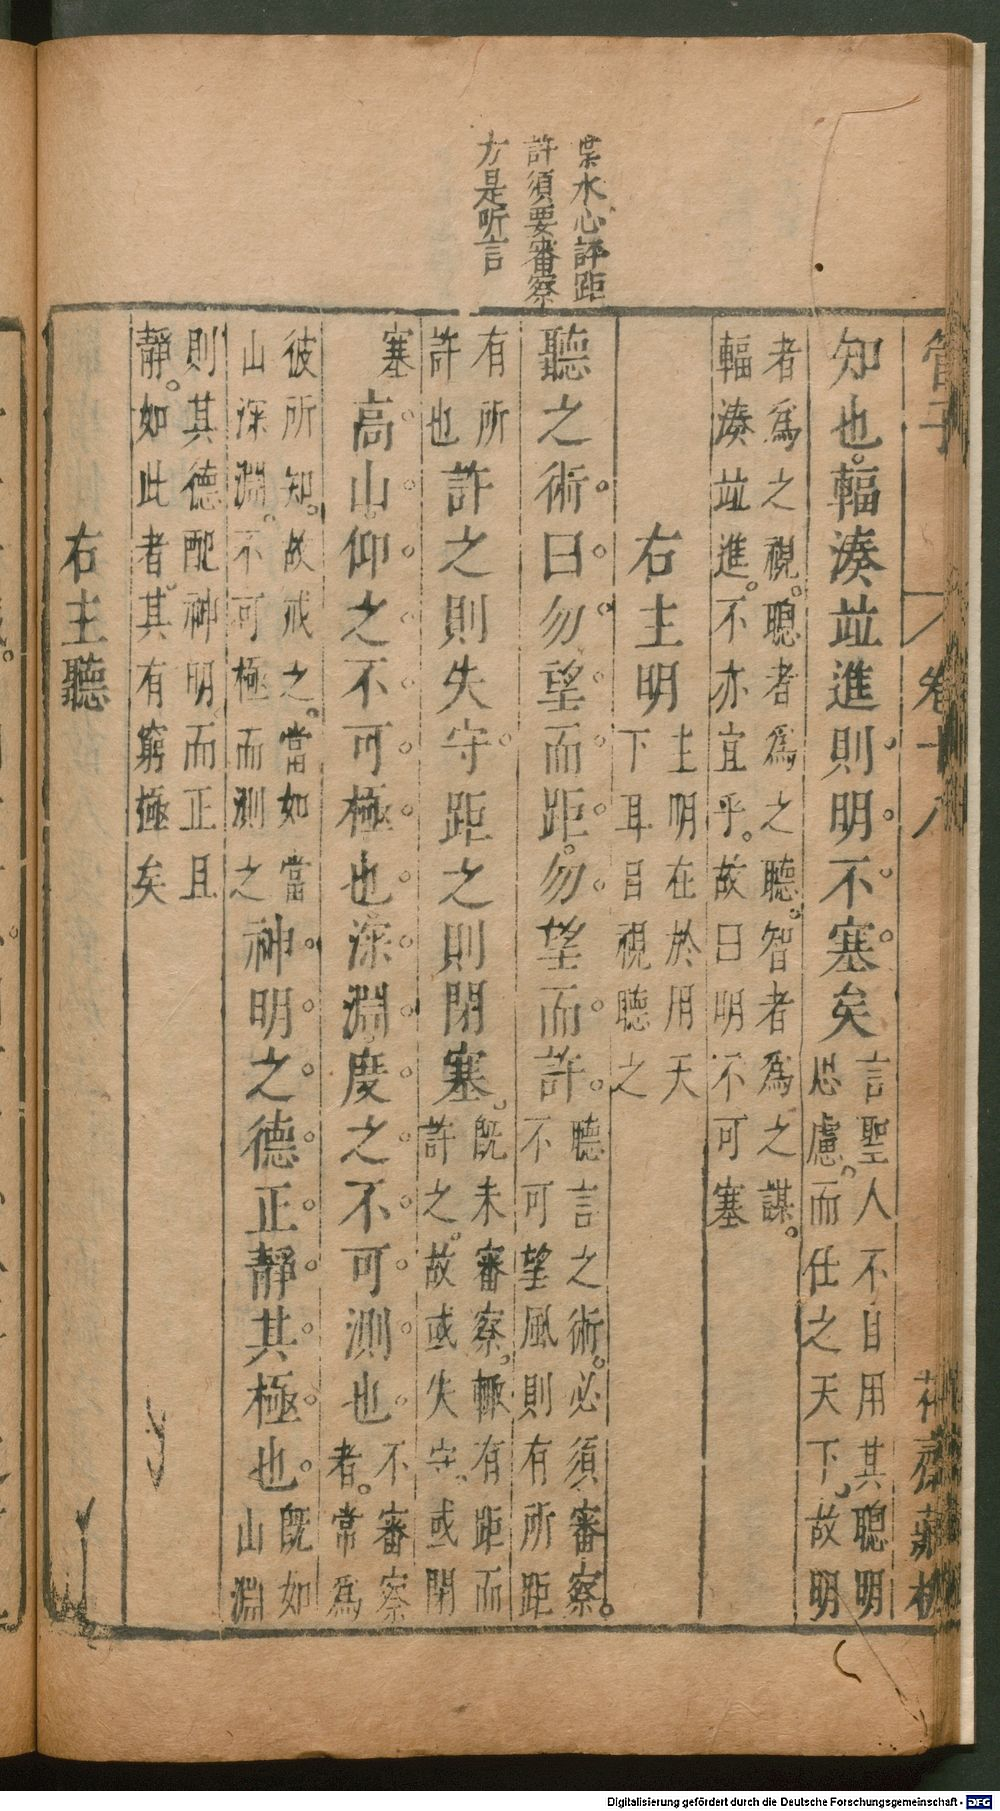 葉水心評距
許須要審察
方是听言
管子 卷十八 花齋藏板
知也。輻湊竝進則明不塞矣
言聖人不自用其聰明
思慮。而任之天下。故明
者爲之視。聰者爲之聽。智者爲之謀。
輻湊竝進。不亦宜乎。故曰明不可塞
右主明
主明在於用天
下耳目視聽之
聽之術曰勿望而距。勿望而許。
聽言之術。必須審察。
不可望風則有所距
有所
許也
許之則失守距之則閉塞。
既未審察。輒有距而
許之。故或失守。或閉
塞
高山仰之不可極也深淵度之不可測也
不審察
者。常爲
彼所知。故戒之。當如當
山深淵。不可極而測之
神明之德正靜其極也
既如
山淵
則其德配神明。而正且
靜。如此者。其有窮極矣
右主聽
Digitalisierung gefördert durch die Deutsche Forschungsgemeinschaft - DFG